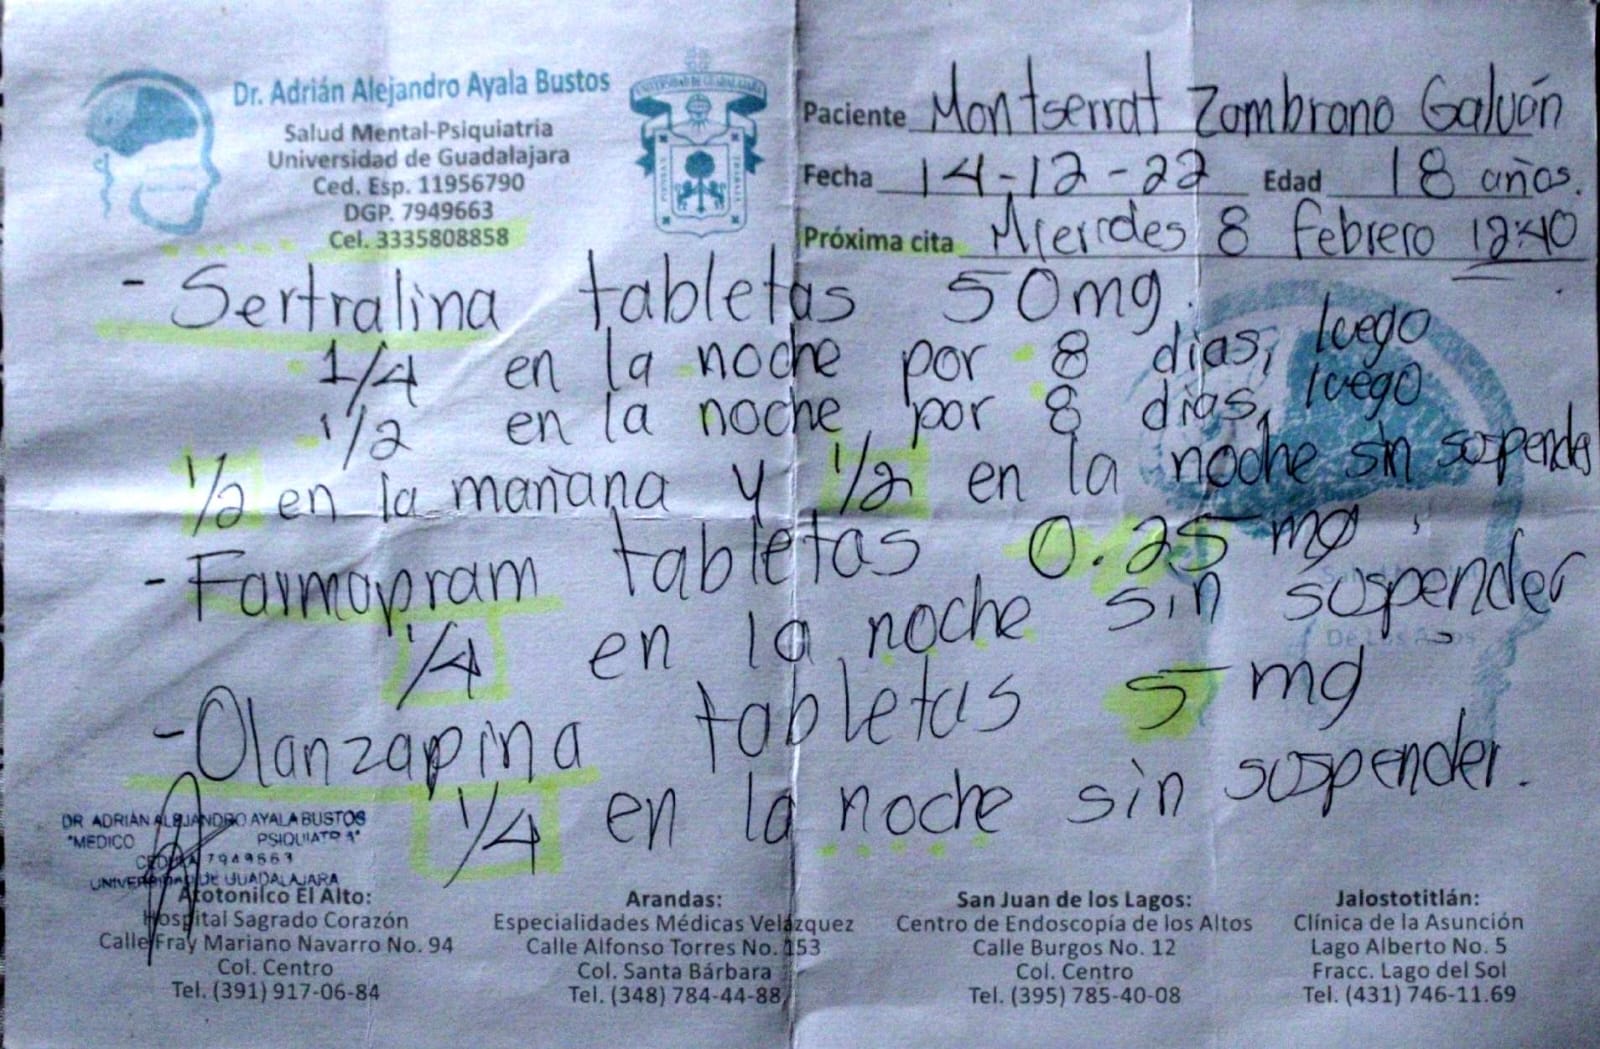 Dr. Adrián Alejandro Ayala Bustos
Salud Mental-Psiquiatria
Universidad de Guadalajara
Ced. Esp. 11956790
DGP. 7949663
Cel. 3335808858
Paciente Montserrat Zambrano Galván
Fecha 14-12-22 Edad 18 años.
Próxima cita Mierrdes 8 Febrero 12:40
- Sertralina tabletas 50mg.
1/4 en la noche por 8 dias, luego
1/2 en la noche por 8 dias, luego
1/2 en la mañana y 1/2 en la noche sin suspender
- Farmapram tabletas 0.25 mg
1/4 en la noche sin suspender
- Olanzapina tabletas 5 mg
1/4 en la noche sin suspender.
DR ADRIÁN ALEJANDRO AYALA BUSTOS
"MEDICO PSIQUIATRA"
CEDULA 7949663
UNIVERSIDAD DE GUADALAJARA
Atotonilco El Alto:
Hospital Sagrado Corazón
Calle Fray Mariano Navarro No. 94
Col. Centro
Tel. (391) 917-06-84
Arandas:
Especialidades Médicas Velázquez
Calle Alfonso Torres No. 153
Col. Santa Bárbara
Tel. (348) 784-44-88
San Juan de los Lagos:
Centro de Endoscopía de los Altos
Calle Burgos No. 12
Col. Centro
Tel. (395) 785-40-08
Jalostotitlán:
Clínica de la Asunción
Lago Alberto No. 5
Fracc. Lago del Sol
Tel. (431) 746-11.69